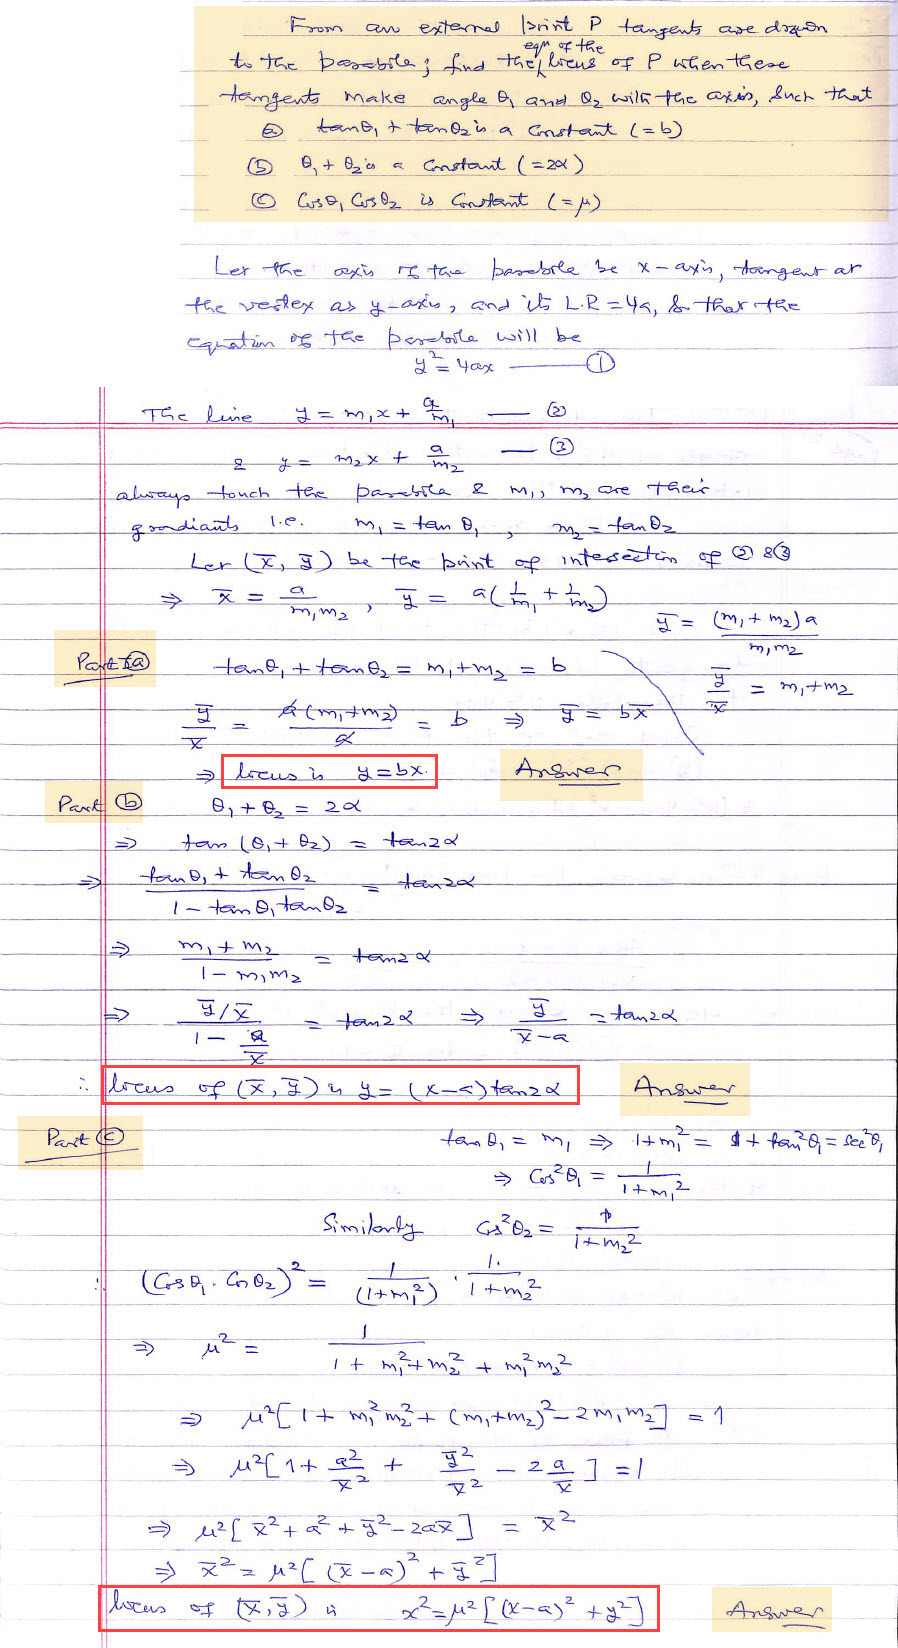 From an external point P tangents are drawn
eqn of the
to the parabola; find the locus of P when these
tangents make angle θ₁ and θ₂ with the axis, such that
(a) tanθ₁ + tanθ₂ is a constant (=b)
(b) θ₁ + θ₂ is a constant (=2α)
(c) Cosθ₁ Cosθ₂ is Constant (=μ)
Let the axis of the parabola be x-axis, tangent at
the vertex as y-axis, and its L.R = 4a, so that the
equation of the parabola will be
y² = 4ax — (1)
The line y = m₁x + a/m₁ — (2)
& y = m₂x + a/m₂ — (3)
always touch the parabola & m₁, m₂ are their
gradiants i.e. m₁ = tan θ₁, m₂ = tanθ₂
Let (x̄, ȳ) be the point of intersection of (2) & (3)
⇒ x̄ = a/m₁m₂, ȳ = a(1/m₁ + 1/m₂)
ȳ = (m₁+m₂)a/m₁m₂
ȳ/x̄ = m₁+m₂
Part (a) tanθ₁ + tanθ₂ = m₁+m₂ = b
ȳ/x̄ = a(m₁+m₂)/a = b ⇒ ȳ = bx̄
⇒ locus is y=bx. Answer
Part (b) θ₁ + θ₂ = 2α
⇒ tan (θ₁ + θ₂) = tan2α
⇒ (tanθ₁ + tanθ₂)/(1 - tanθ₁tanθ₂) = tan2α
⇒ (m₁ + m₂)/(1 - m₁m₂) = tan2α
⇒ (ȳ/x̄)/(1 - a/x̄) = tan2α ⇒ ȳ/(x̄-a) = tan2α
∴ locus of (x̄, ȳ) is y = (x-a)tan2α Answer
Part (c) tanθ₁ = m₁ ⇒ 1+m₁² = 1 + tan²θ₁ = sec²θ₁
⇒ Cos²θ₁ = 1/(1+m₁²)
Similarly Cos²θ₂ = 1/(1+m₂²)
∴ (Cosθ₁ . Cosθ₂)² = 1/(1+m₁²) . 1/(1+m₂²)
⇒ μ² = 1/(1 + m₁²+m₂² + m₁²m₂²)
⇒ μ²[1 + m₁²m₂² + (m₁+m₂)² - 2m₁m₂] = 1
⇒ μ²[1 + a²/x̄² + ȳ²/x̄² - 2a/x̄] = 1
⇒ μ²[x̄² + a² + ȳ² - 2ax̄] = x̄²
⇒ x̄² = μ²[(x̄-a)² + ȳ²]
locus of (x̄, ȳ) is x² = μ²[(x-a)² + y²] Answer